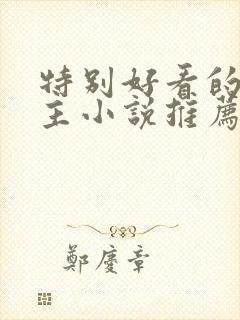 特别好看的
主小説推薦
鄭慶章